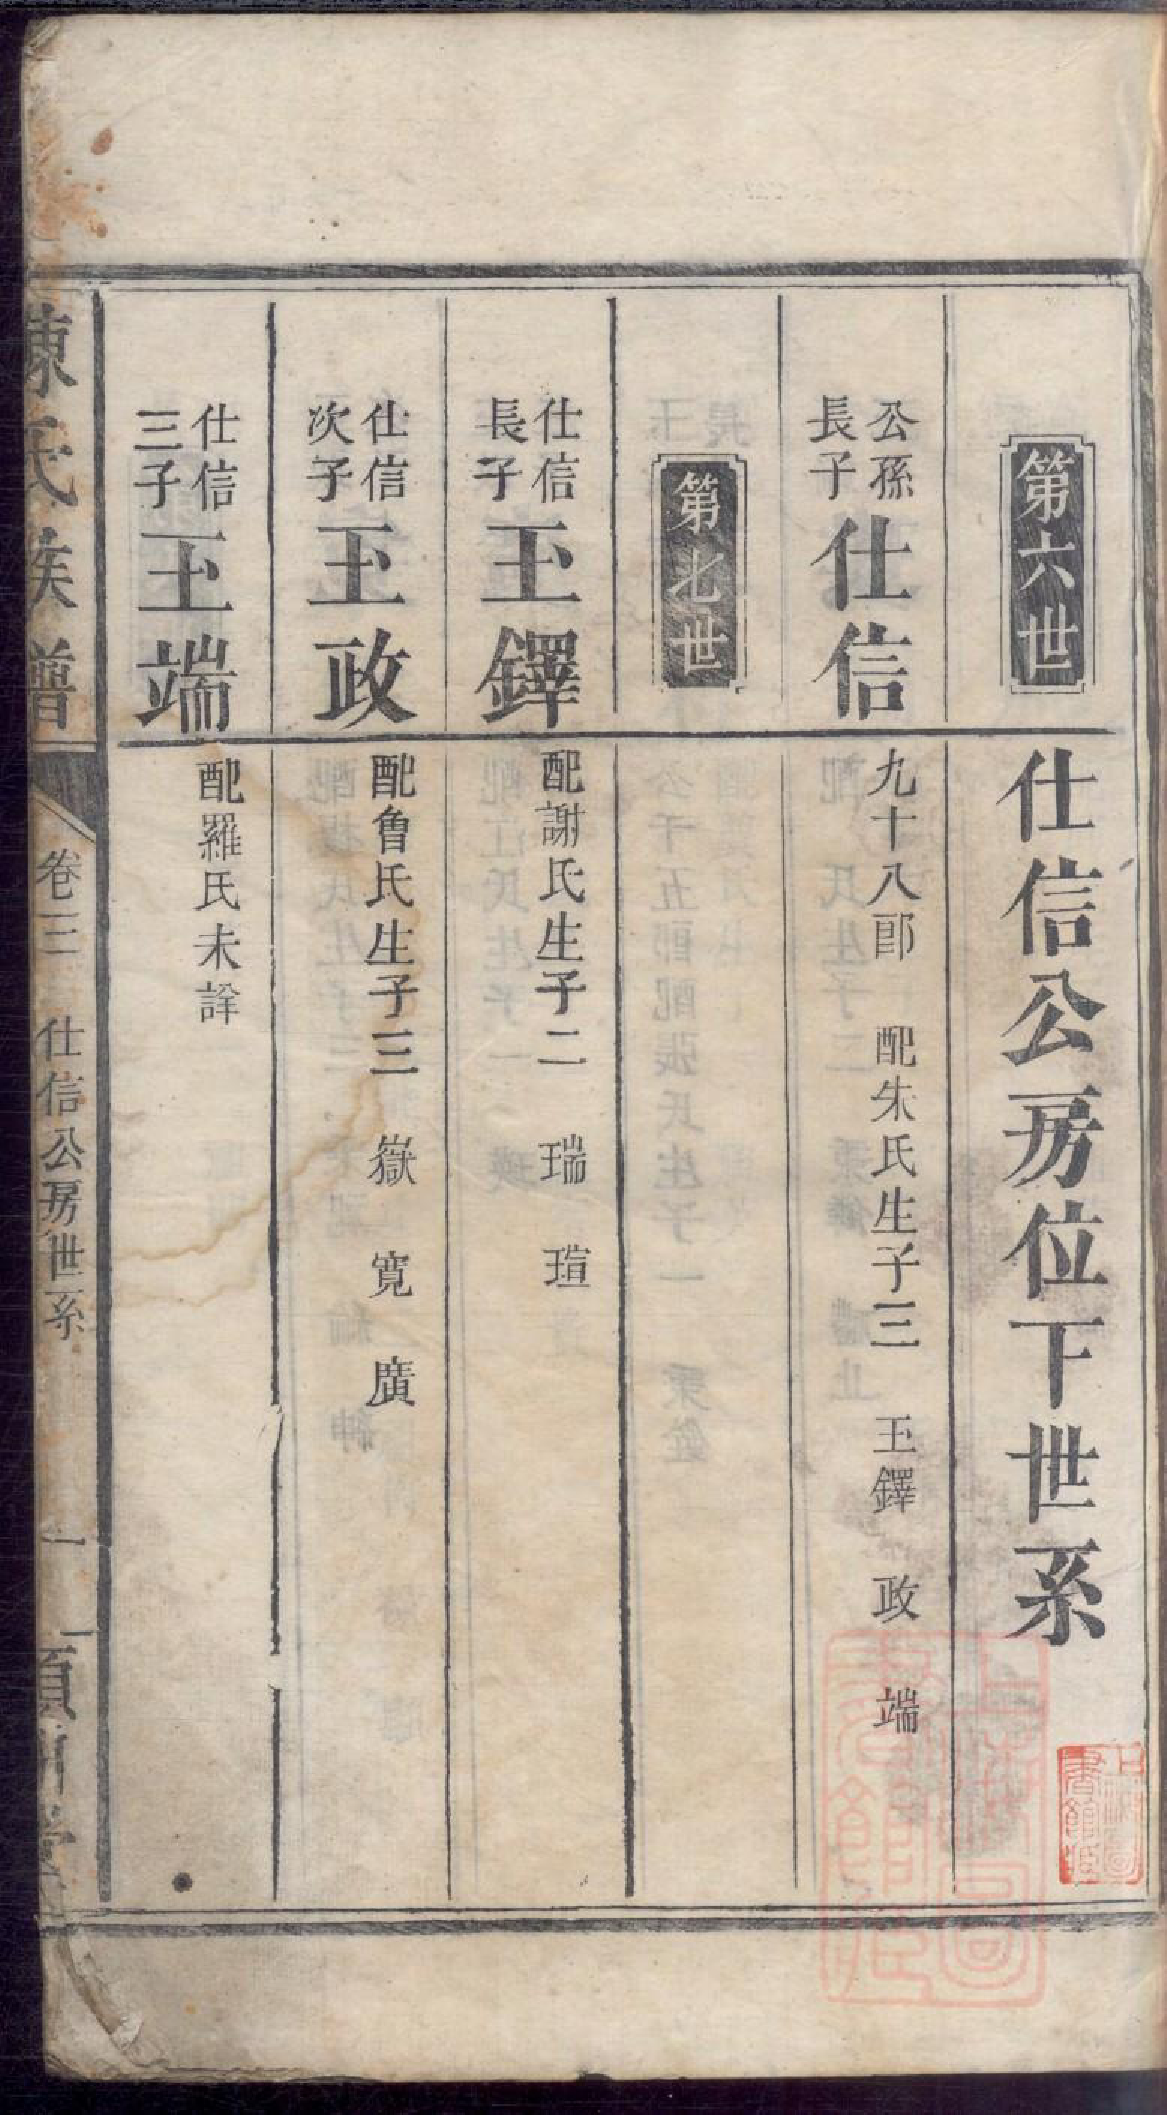 仕信公房位下世系
第六世
公孫長子
仕信
九十八郎 配朱氏生子三 玉鐸 政 端
第七世
仕信長子
玉鐸
配謝氏生子二 瑞 瑄
仕信次子
玉政
配魯氏生子三 嶽 寬 廣
仕信三子
玉端
配羅氏未詳
陳氏族譜
卷三 仕信公房世系
一
川堂